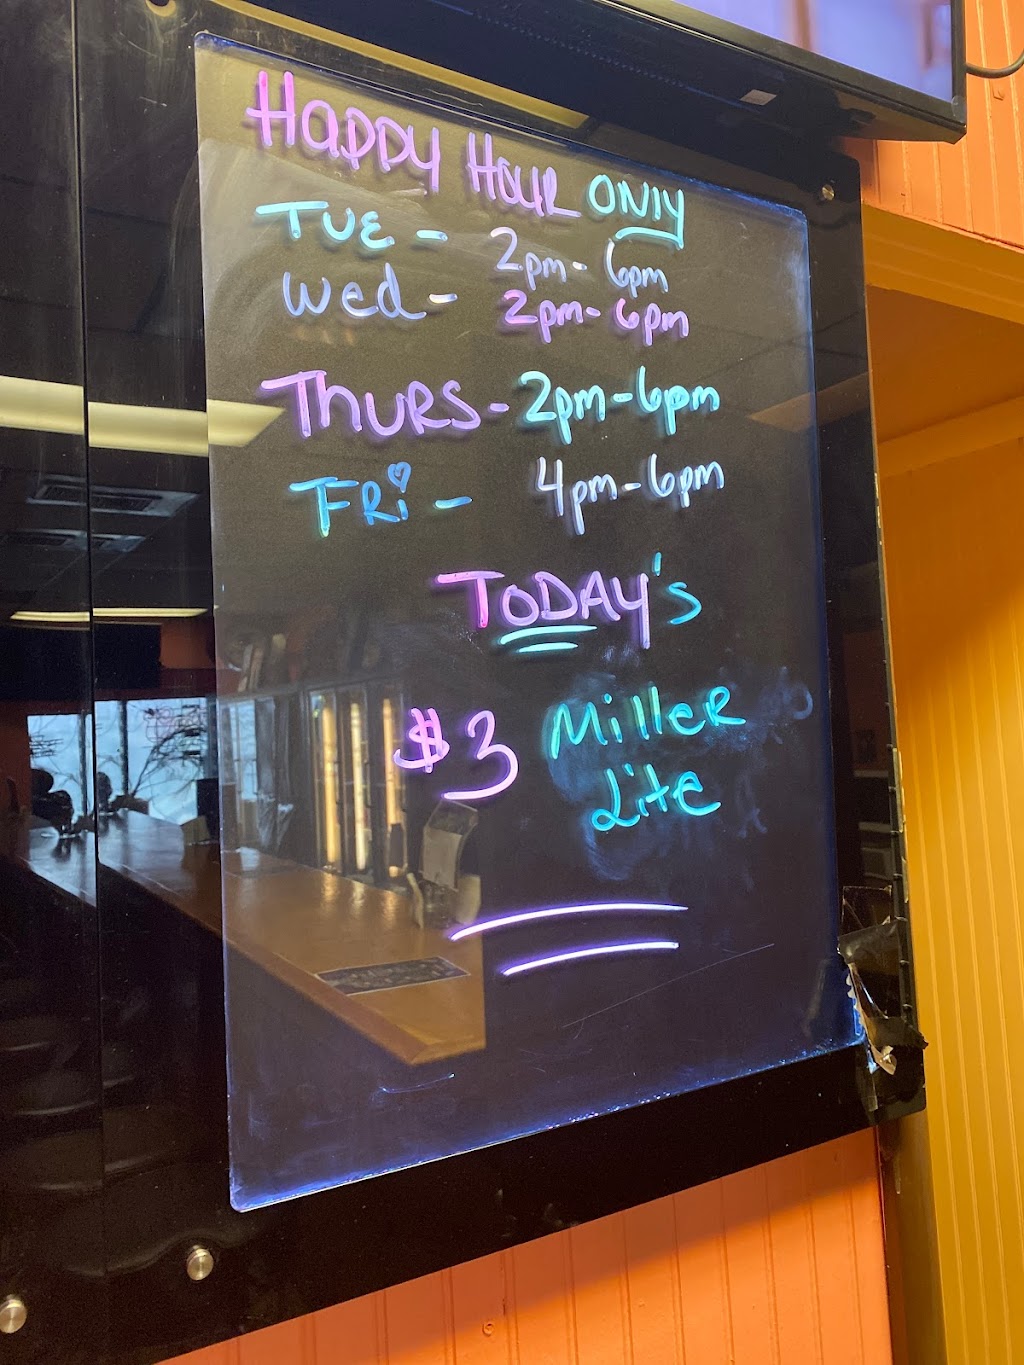 HAPPY HOUR ONLY
TUE - 2pm - 6pm
Wed - 2pm - 6pm
THURS - 2pm - 6pm
FRi - 4pm - 6pm
TODAY's
$3 MilleR
Lite